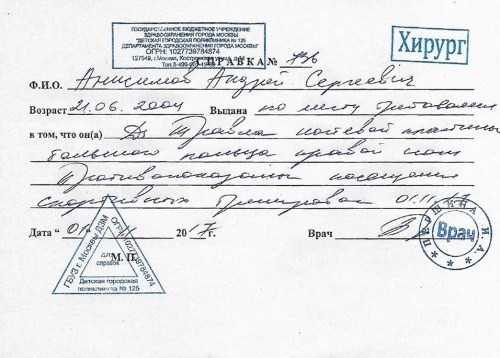 ГОСУДАРСТВЕННОЕ БЮДЖЕТНОЕ УЧРЕЖДЕНИЕ
ЗДРАВООХРАНЕНИЯ ГОРОДА МОСКВЫ
"ДЕТСКАЯ ГОРОДСКАЯ ПОЛИКЛИНИКА № 125
ДЕПАРТАМЕНТА ЗДРАВООХРАНЕНИЯ ГОРОДА МОСКВЫ"
ОГРН: 1027739784874
127549, г.Москва,
СПРАВКА № 736
Хирург
Ф.И.О. Анисимов Андрей Сергеевич
Возраст 21.06.2004 Выдана по месту требования
в том, что он(а) Ds Травма ногтевой пластины
большого пальца правой ноги
Противопоказаны посещения
спортивных тренировок 01.11.17
Дата "01" 11 2017г. Врач
М.П.
ГБУЗ г. Москвы ДЗМ
ОГРН 1027739784874
для
справок
Детская городская
поликлиника № 125
ПЕРШИНА И.А.
Врач